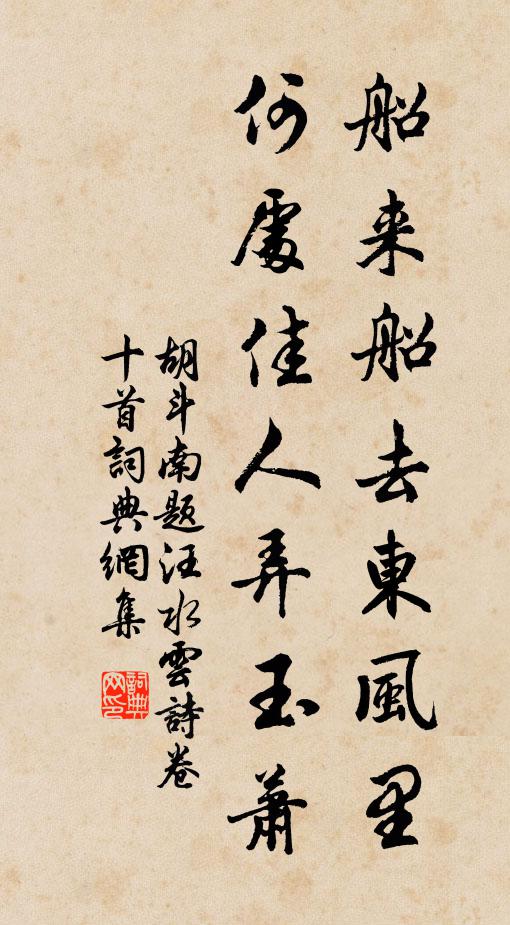 船来船去東風里
何處佳人弄玉蕭
胡斗南題汪水雲詩卷
十首詞典網集
詞典
网印